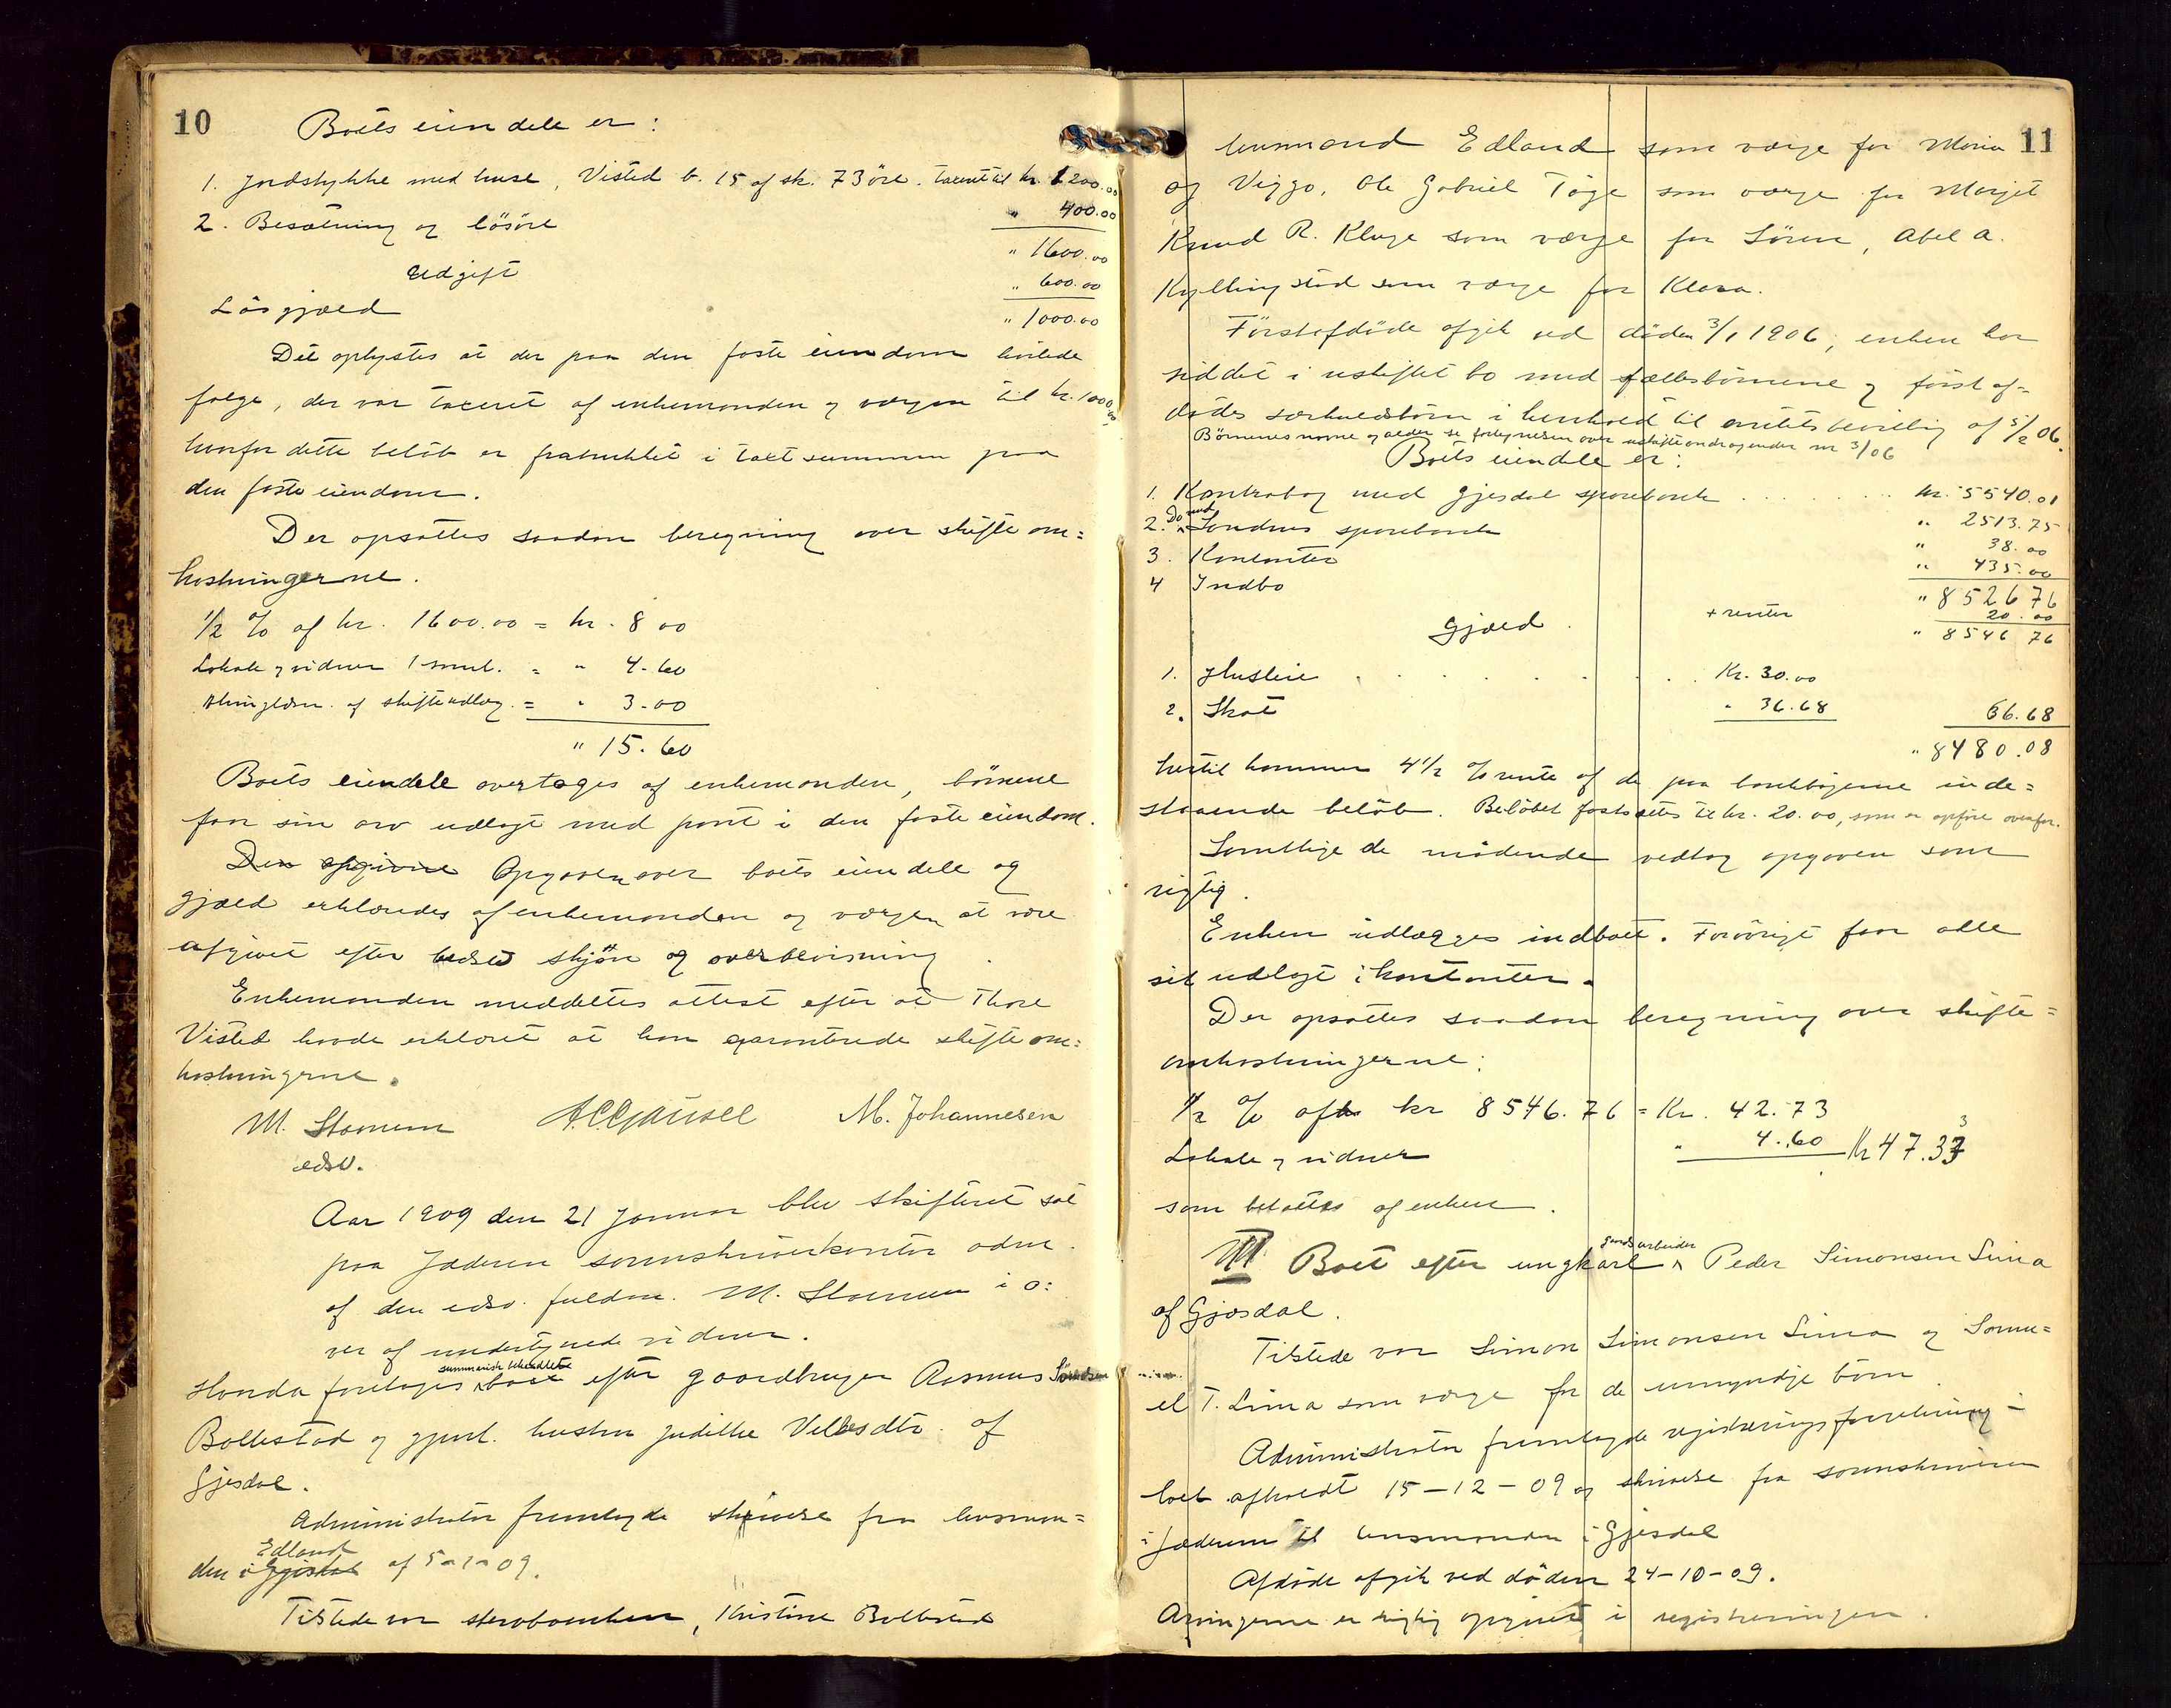 10
Boets eiendele er:
1. Jordstykke med huse, Visted b. 15 af sk. 73 øre. taxert til kr. 1200.00
2. Besætning og løsøre " 400.00
" 1600.00
Udgift
Løsgjæld " 600.00
" 1000.00
Det oplystes at der paa den faste eiendom hvilede
følge, der var taxeret af enkemanden og værgen til kr. 1000.00
hvorfor dette beløb er fratrukket i taxtsummen paa
den faste eiendom.
Der opsattes saadan beregning over skifteom=
kostningerne.
1/2 % af kr. 1600.00 = kr. 8 00
Lokale og vidner 1 saml. = " 4.60
Thinglæsn. af skifteudlæg. = " 3.00
" 15.60
Boets eiendele overtages af enkemanden, børnene
faar sin arv udlagt med pant i den faste eiendom.
Den afgivne Opgaven over boets eiendele og
gjæld erklæredes af enkemanden og værgen at være
afgivet efter bedste skjøn og overbevisning.
Enkemanden meddeltes attest efter at Thore
Visted havde erklæret at han garanterede skifteom=
kostningerne.
M. Stornem M. Johannesen
edsv.
Aar 1909 den 21 januar blev skifteret sat
paa Jæderen sorenskriverkontor adm.
af den edsv. fuldm. M. Stornem i o:
ver af undertegnede vidner.
summarisk behandlet
Honda foretoges boet efter gaardbruger Rasmus Sørensen
Bollestad og gjenl. hustru Judithe Vellesdtr. af
Gjesdal.
Administrator fremlagde skrivelse fra lensman=
Edland
den i Gjesdal af 5-1-09.
Tilstede var stervboenken, Kristine Bollestad
11
lensmand Edland som værge for Maria
og Viggo, Ole Gabriel Tøge som værge for Marjet
Knud R. Kluge som værge for Søren, Abel A.
Kyllingstad som værge for Klara.
Førstafdøde afgik ved døden 3/1 1906, enken har
siddet i uskiftet bo med fællesbørnene og førstaf=
dødes særkuldsbørn i henhold til amtets bevilling af 5/2 06.
Børnenes navne og alder se fortegnelsen over uskifteandragender nr 3/06
Boets eiendele er:
1. Kontrabog med Gjesdal sparebank kr. 5540.01
2. Do med Sandnes sparebank " 2513.75
3. Kontanter " 38.00
4 Indbo " 435.00
" 8526 76
+ renter 20.00
" 8546 76
Gjæld.
1. Husleie Kr. 30.00
2. Skat " 36.68 66.68
" 8480.08
hertil kommer 4 1/2 % rente af de paa bankbøgerne inde=
staaende beløb. Beløbet fastsættes til kr. 20.00, som er opført ovenfor.
Samtlige de mødende vedtog opgaven som
rigtig.
Enken udlægges indboet. Forøvrigt faar alle
sit udlagt i kontanter.
Der opsattes saadan beregning over skifte=
omkostningerne:
1/2 % af kr 8546.76 = Kr. 42.73
Lokale og vidner " 4.60 Kr 47.33
som betaltes af enken.
III Boet efter ungkarl gaardsarbeider Peder Simonsen Lima
af Gjesdal.
Tilstede var Simon Simonsen Lima og Samu=
el T. Lima som værge for de umyndige børn
Administrator fremlagde registreringsforretning i
boet afholdt 15-12-09 og skrivelse fra sorenskriveren
i Jæderen til lensmanden i Gjesdal
Afdøde afgik ved døden 24-10-09.
Arvingerne er rigtig opgivet i registreringen.